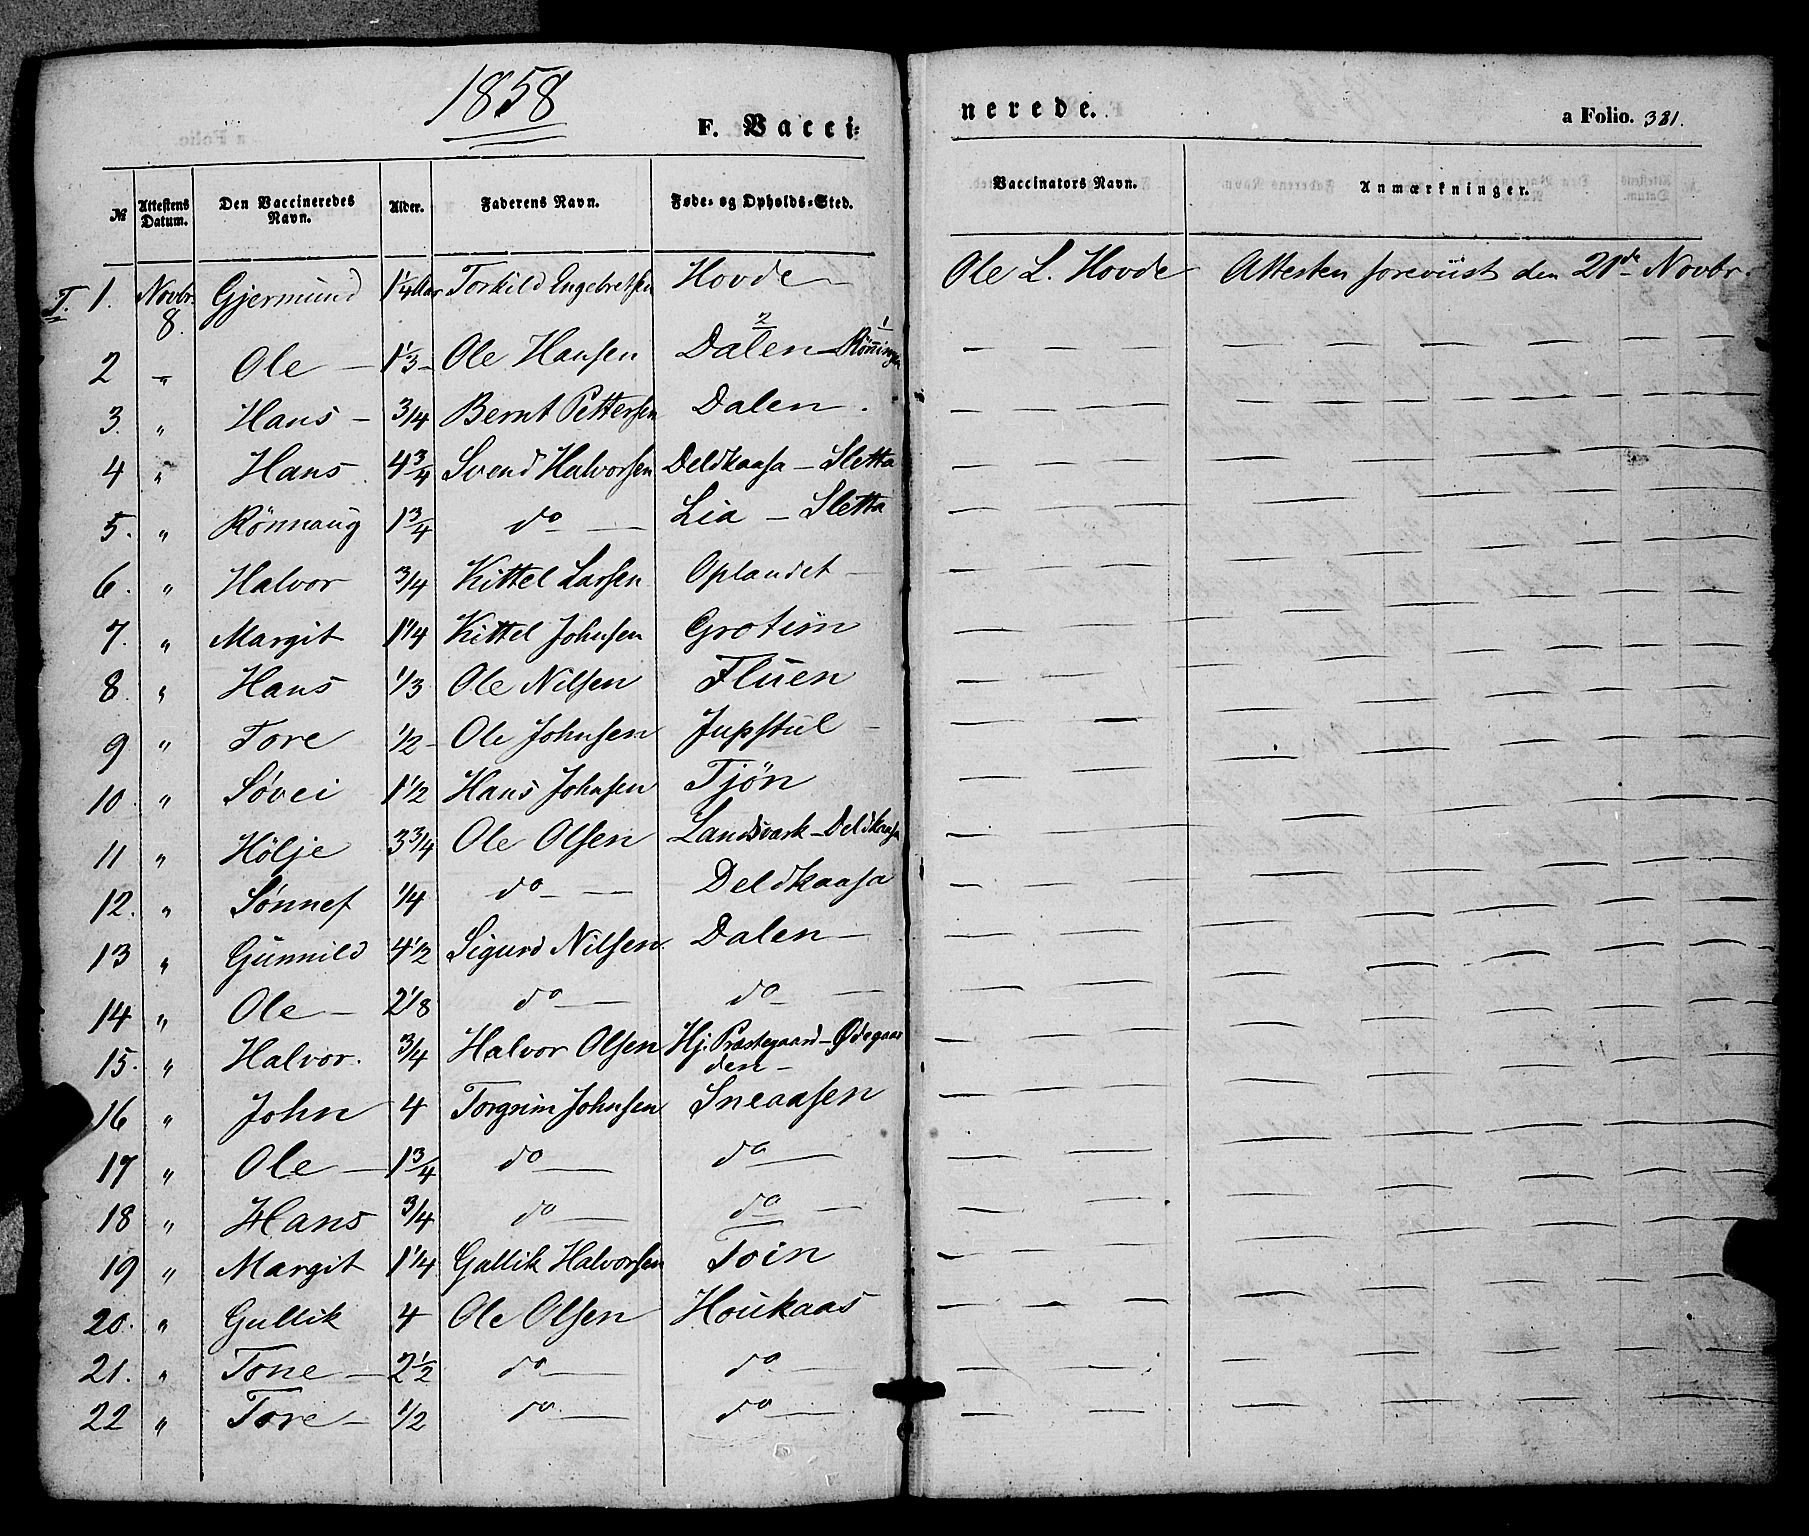 1858
F. Vacci=
nerede.
a Folio. 381.
№ Attestens Datum. Den Vaccineredes Navn. Alder. Faderens Navn. Føde- og Opholds-Sted. Vaccinators Navn. Anmærkninger.
T. 1. Novbr. 8. Gjermund 1¼ Aar Torkild Engebretsen Hovde — Ole L. Hovde Attesten foreviist den 21de Novbr.
2 " Ole — 1⅓ — Ole Hansen 2 Dalen — 1 Rönningen
3. " Hans — 3/4 Bernt Pettersen Dalen.
4 " Hans. 4¾ Svend Halvorsen Deldkaasa — Sletta
5. " Rönnaug 1¾ do — Lia — Sletta
6. " Halvor 3/4 Kittel Larsen Oplandet —
7. " Margit 1¼ Kittel Johnsen Grotim
8. " Hans 1/3 Ole Nilsen Fluen
9 " Tore 1/2 — Ole Johnsen Jupstul —
10. " Søvei 1½ Hans Johnsen Tjön
11 " Hölje 3¾ Ole Olsen Landsvark — Deldkaasa
12. " Sønnef 1/4 do — Deldkaasa
13 " Gunnild 4½ Sigurd Nilsen Dalen —
14 " Ole — 2⅛ do — do —
15. " Halvor. 3/4 Halvor Olsen Hj. Præstegaard — Ødegaar
den —
16 " John 4 Torgrim Johnsen Sneaasen
17 " Ole — 1¾ do — do —
18 " Hans 3/4 do — do —
19 " Margit 1¼ Gullik Halvorsen Toin
20. " Gullik 4 Ole Olsen Houkaas
21. " Tone — 2½ do — do —
22 " Tore — 1/2 do — do —